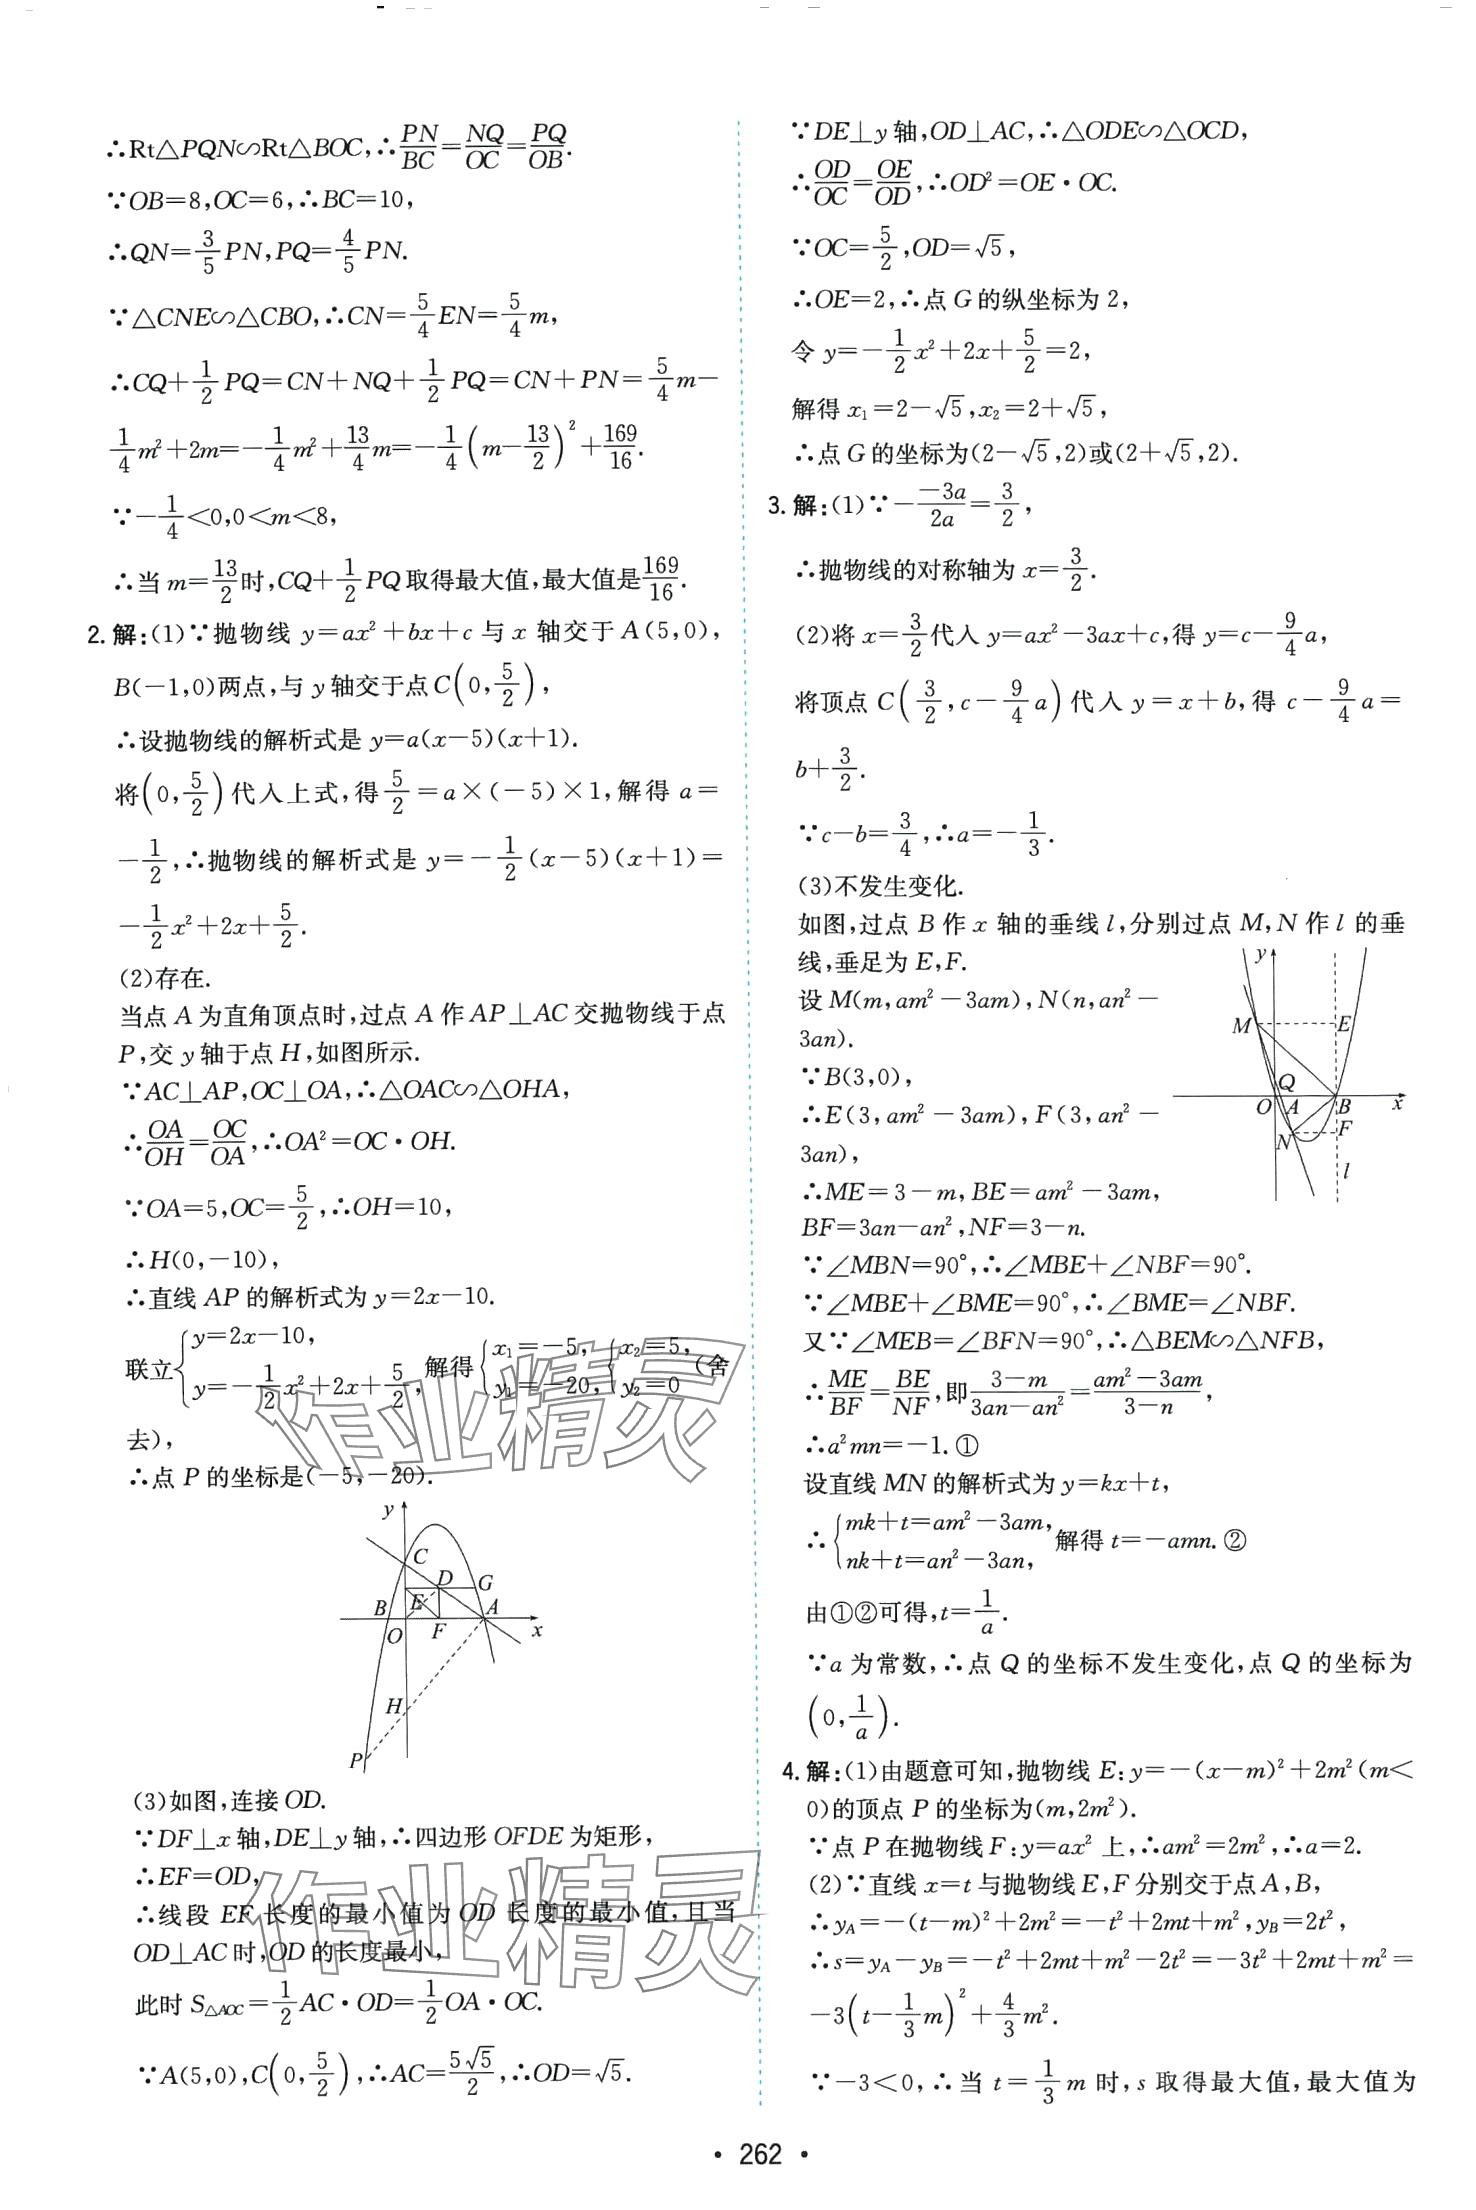 ∴Rt△PQN∽Rt△BOC,∴PN/BC=NQ/OC=PQ/OB.
∵OB=8,OC=6,∴BC=10,
∴QN=3/5PN,PQ=4/5PN.
∵△CNE∽△CBO,∴CN=5/4EN=5/4m,
∴CQ+1/2PQ=CN+NQ+1/2PQ=CN+PN=5/4m-
1/4m²+2m=-1/4m²+13/4m=-1/4(m-13/2)²+169/16.
∵-1/4<0,0<m<8,
∴当 m=13/2时,CQ+1/2PQ取得最大值,最大值是169/16.
2.解:(1)∵抛物线 y=ax²+bx+c 与 x 轴交于 A(5,0),
B(-1,0)两点,与 y轴交于点C(0,5/2),
∴设抛物线的解析式是 y=a(x-5)(x+1).
将(0,5/2)代入上式,得5/2=a×(-5)×1,解得 a=
-1/2,∴抛物线的解析式是 y=-1/2(x-5)(x+1)=
-1/2x²+2x+5/2.
(2)存在.
当点 A 为直角顶点时,过点 A 作 AP⊥AC 交抛物线于点
P,交 y轴于点 H,如图所示.
∵AC⊥AP,OC⊥OA,∴△OAC∽△OHA,
∴OA/OH=OC/OA,∴OA²=OC·OH.
∵OA=5,OC=5/2,∴OH=10,
∴H(0,-10),
∴直线 AP 的解析式为 y=2x-10.
联立{y=2x-10, y=-1/2x²+2x+5/2,解得{x₁=-5, y₁=-20,{x₂=5, y₂=0(舍
去),
∴点 P 的坐标是(-5,-20).
y
C
D
G
B
E
A
O
F
x
H
P
(3)如图,连接 OD.
∵DF⊥x轴,DE⊥y轴,∴四边形 OFDE 为矩形,
∴EF=OD,
∴线段 EF 长度的最小值为 OD 长度的最小值,且当
OD⊥AC时,OD 的长度最小,
此时 S△AOC=1/2AC·OD=1/2OA·OC.
∵A(5,0),C(0,5/2),∴AC=5√5/2,∴OD=√5.
∵DE⊥y轴,OD⊥AC,∴△ODE∽△OCD,
∴OD/OC=OE/OD,∴OD²=OE·OC.
∵OC=5/2,OD=√5,
∴OE=2,∴点 G 的纵坐标为 2,
令 y=-1/2x²+2x+5/2=2,
解得 x₁=2-√5,x₂=2+√5,
∴点 G 的坐标为(2-√5,2)或(2+√5,2).
3.解:(1)∵--3a/2a=3/2,
∴抛物线的对称轴为 x=3/2.
(2)将 x=3/2代入 y=ax²-3ax+c,得 y=c-9/4a,
将顶点 C(3/2,c-9/4a)代入 y=x+b,得 c-9/4a=
b+3/2.
∵c-b=3/4,∴a=-1/3.
(3)不发生变化.
如图,过点 B 作 x 轴的垂线 l,分别过点 M,N 作 l 的垂
线,垂足为 E,F.
设 M(m,am²-3am),N(n,an²-
3an).
∵B(3,0),
∴E(3,am²-3am),F(3,an²-
3an),
∴ME=3-m,BE=am²-3am,
BF=3an-an²,NF=3-n.
y
M
E
Q
O
A
B
x
N
F
l
∵∠MBN=90°,∴∠MBE+∠NBF=90°.
∵∠MBE+∠BME=90°,∴∠BME=∠NBF.
又∵∠MEB=∠BFN=90°,∴△BEM∽△NFB,
∴ME/BF=BE/NF,即3-m/3an-an²=am²-3am/3-n,
∴a²mn=-1.①
设直线 MN 的解析式为 y=kx+t,
∴{mk+t=am²-3am, nk+t=an²-3an,解得 t=-amn.②
由①②可得,t=1/a.
∵a 为常数,∴点 Q 的坐标不发生变化,点 Q 的坐标为
(0,1/a).
4.解:(1)由题意可知,抛物线 E:y=-(x-m)²+2m²(m<
0)的顶点 P 的坐标为(m,2m²).
∵点 P 在抛物线 F:y=ax² 上,∴am²=2m²,∴a=2.
(2)∵直线 x=t 与抛物线 E,F 分别交于点 A,B,
∴yA=-(t-m)²+2m²=-t²+2mt+m²,yB=2t²,
∴s=yA-yB=-t²+2mt+m²-2t²=-3t²+2mt+m²=
-3(t-1/3m)²+4/3m².
∵-3<0,∴当 t=1/3m 时,s 取得最大值,最大值为
作业精灵
作业精灵
· 262 ·